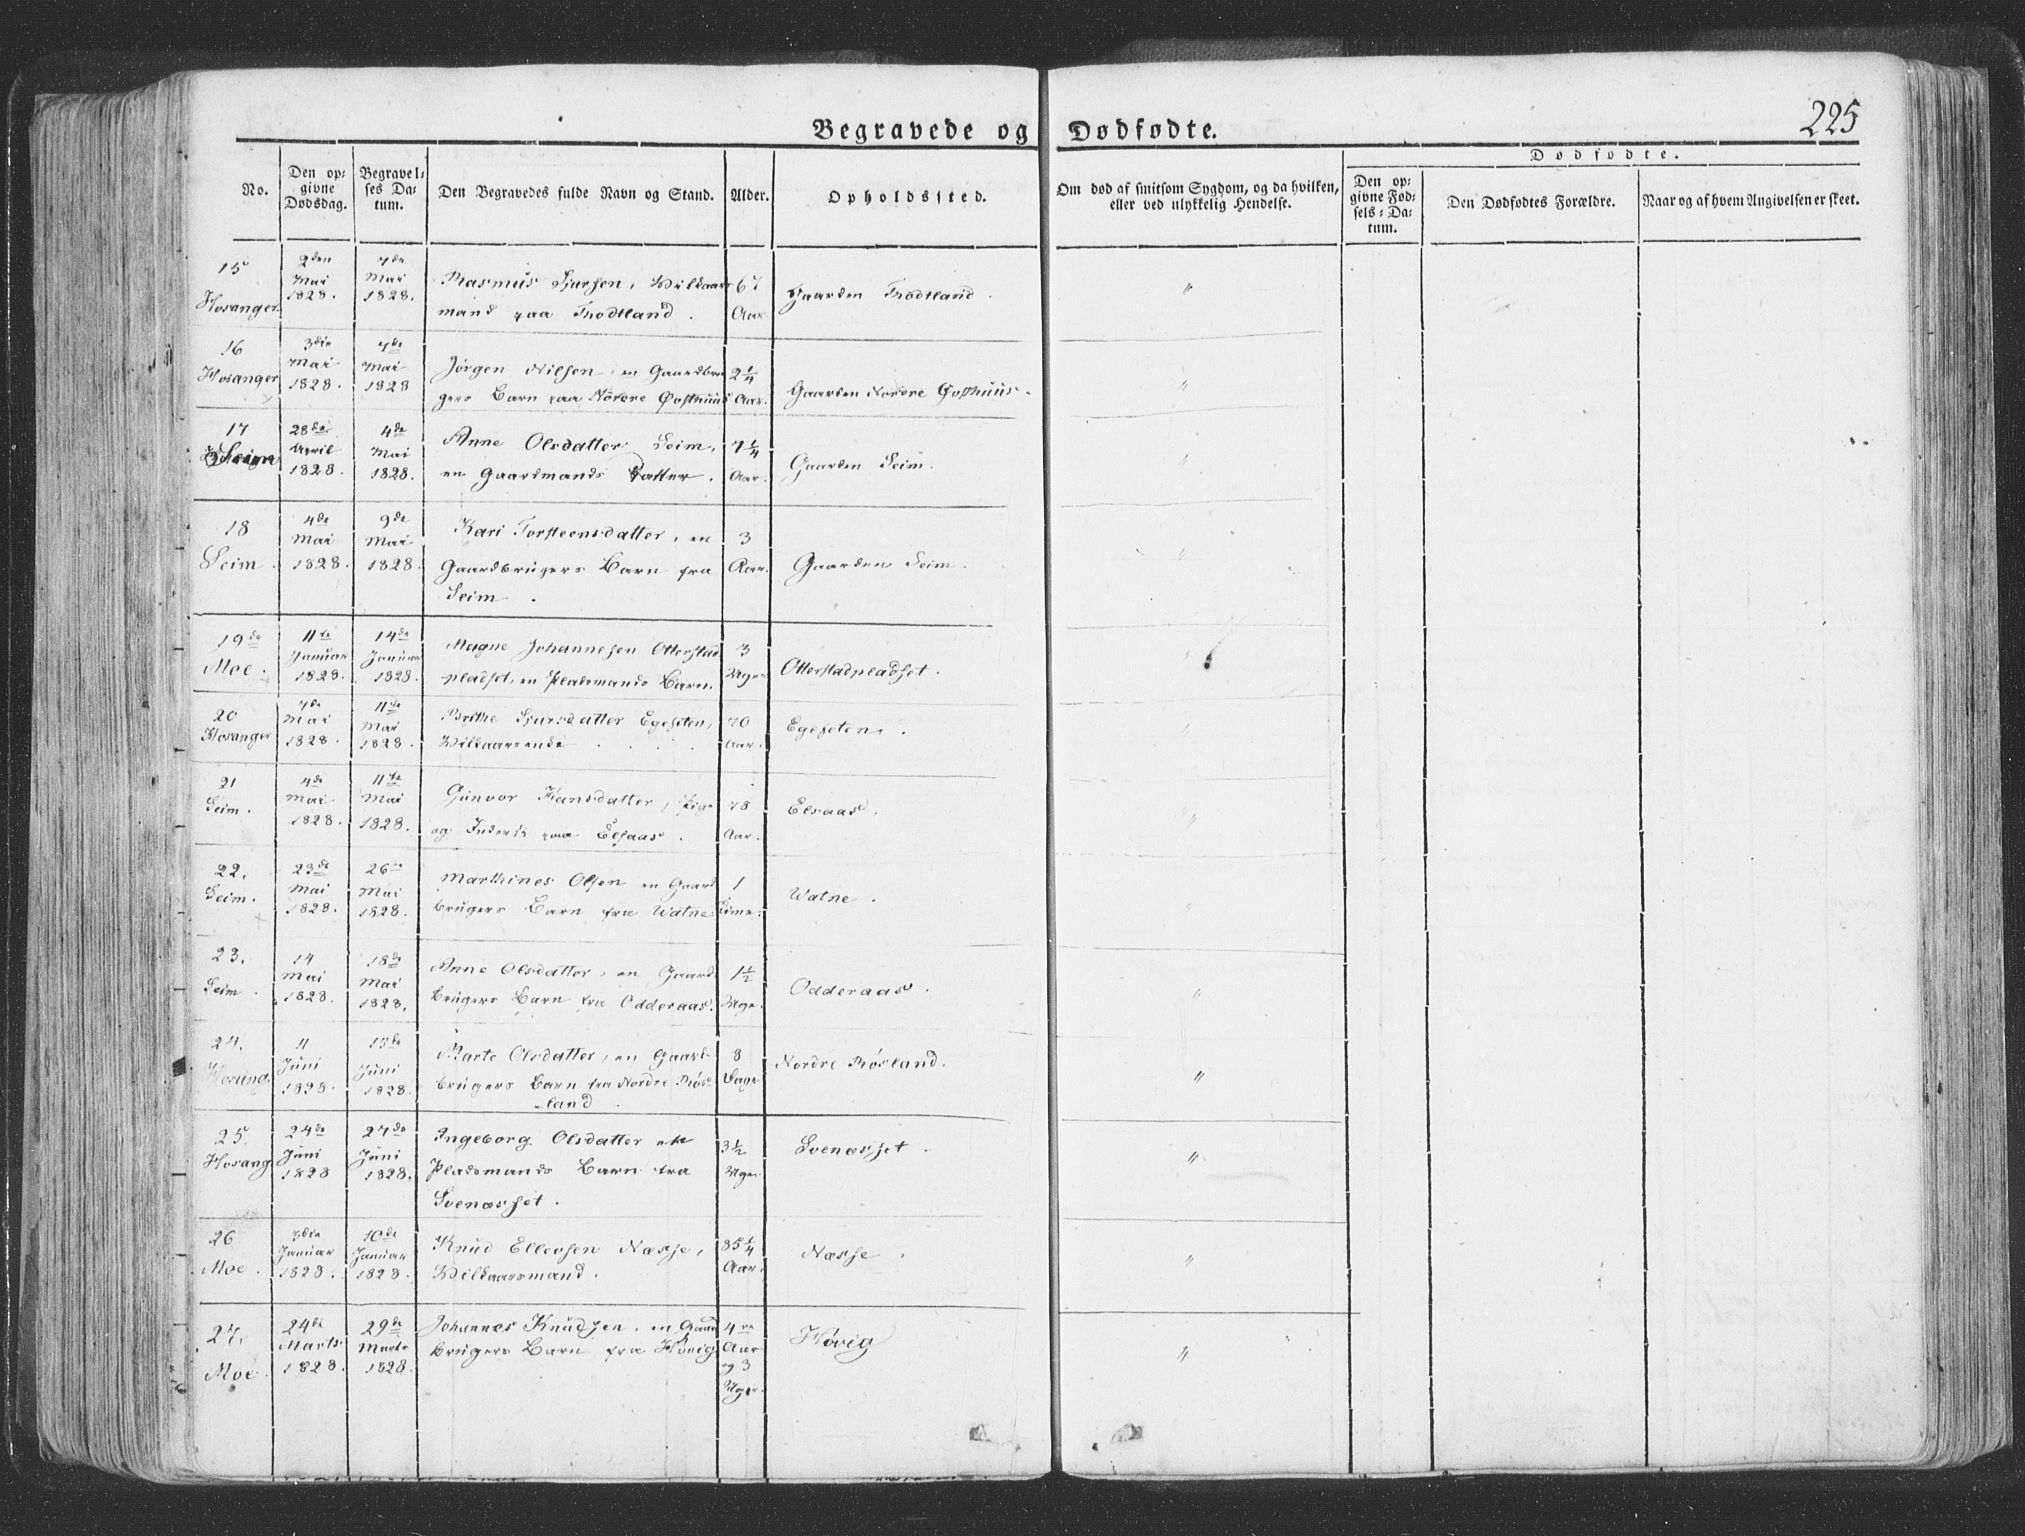 225
Begravede og Dødfødte.
Dødfødte.
No.
Den op-
givne
Dødsdag.
Begravel-
ses Da-
tum.
Den Begravedes fulde Navn og Stand.
Alder.
Opholdssted.
Om død af smitsom Sygdom, og da hvilken,
eller ved ulykkelig Hendelse.
Den op-
givne Fød-
sels-Da-
tum.
Den Dødfødtes Forældre.
Naar og af hvem Angivelsen er skeet.
15 Hosanger
2den Mai 1828.
7de Mai 1828.
Rasmus Sjursen, Vilkaars
mand paa Trodtland.
67 Aar.
Gaarden Trodtland.
"
16 Hosanger
3die Mai 1828.
7de Mai 1828
Jørgen Nilsen, en Gaardbru
gers Barn paa Nordre Østhuus
2 1/4 Aar.
Gaarden Nordre Østhuus.
"
17 Seim
28de April 1828.
4de Mai 1828.
Anne Olsdatter Seim,
en Gaardmands Datter.
7 1/4 Aar.
Gaarden Seim.
"
18 Seim.
4de Mai 1828.
9de Mai 1828.
Kari Torsteensdatter, en
Gaardbrugers Barn fra
Seim.
3 Aar.
Gaarden Seim.
"
19de Moe.
11te Januar 1828.
14de Januar 1828.
Magne Johannesen Otterstad
pladset, en Pladsmands Barn.
3 Uger
Otterstadpladset.
"
20 Hosanger
7de Mai 1828.
11te Mai 1828.
Brithe Sjursdatter Egeseten,
Vilkaarsende
70 Aar.
Egeseten.
"
21 Seim.
4de Mai 1828.
11te Mai 1828.
Gunvor Hansdatter, Pige
og Inderst paa Elsaas.
78 Aar.
Elsaas.
"
22. Seim.
23de Mai 1828.
26de Mai 1828.
Marthines Olsen en Gaard
brugers Barn fra Watne
1 Time.
Watne.
"
23. Seim.
14 Mai 1828.
18de Mai 1828.
Anne Olsdatter, en Gaard
brugers Barn fra Odderaas.
1 1/2 Uge.
Odderaas.
"
24. Hosang
11 Juni 1828.
15de Juni 1828.
Marte Olsdatter, en Gaard
brugers Barn fra Nordre Røs
land.
8 Dage
Nordre Røsland.
"
25. Hosang
24de Juni 1828
27de Juni 1828.
Ingeborg Olsdatter
Pladsmands Barn fra
Svenæsset.
3 1/2 Uge
Svenæsset.
"
26 Moe.
3die Januar 1828.
10de Januar 1828.
Knud Ellevsen Næsse,
Vilkaarsmand.
85 1/4 Aar.
Næsse.
"
27. Moe.
24de Marts 1828.
29de Marts 1828.
Johannes Knudsen, en Gaard
brugers Barn fra Høvig
4re Aar og 3 Uger.
Høvig
"